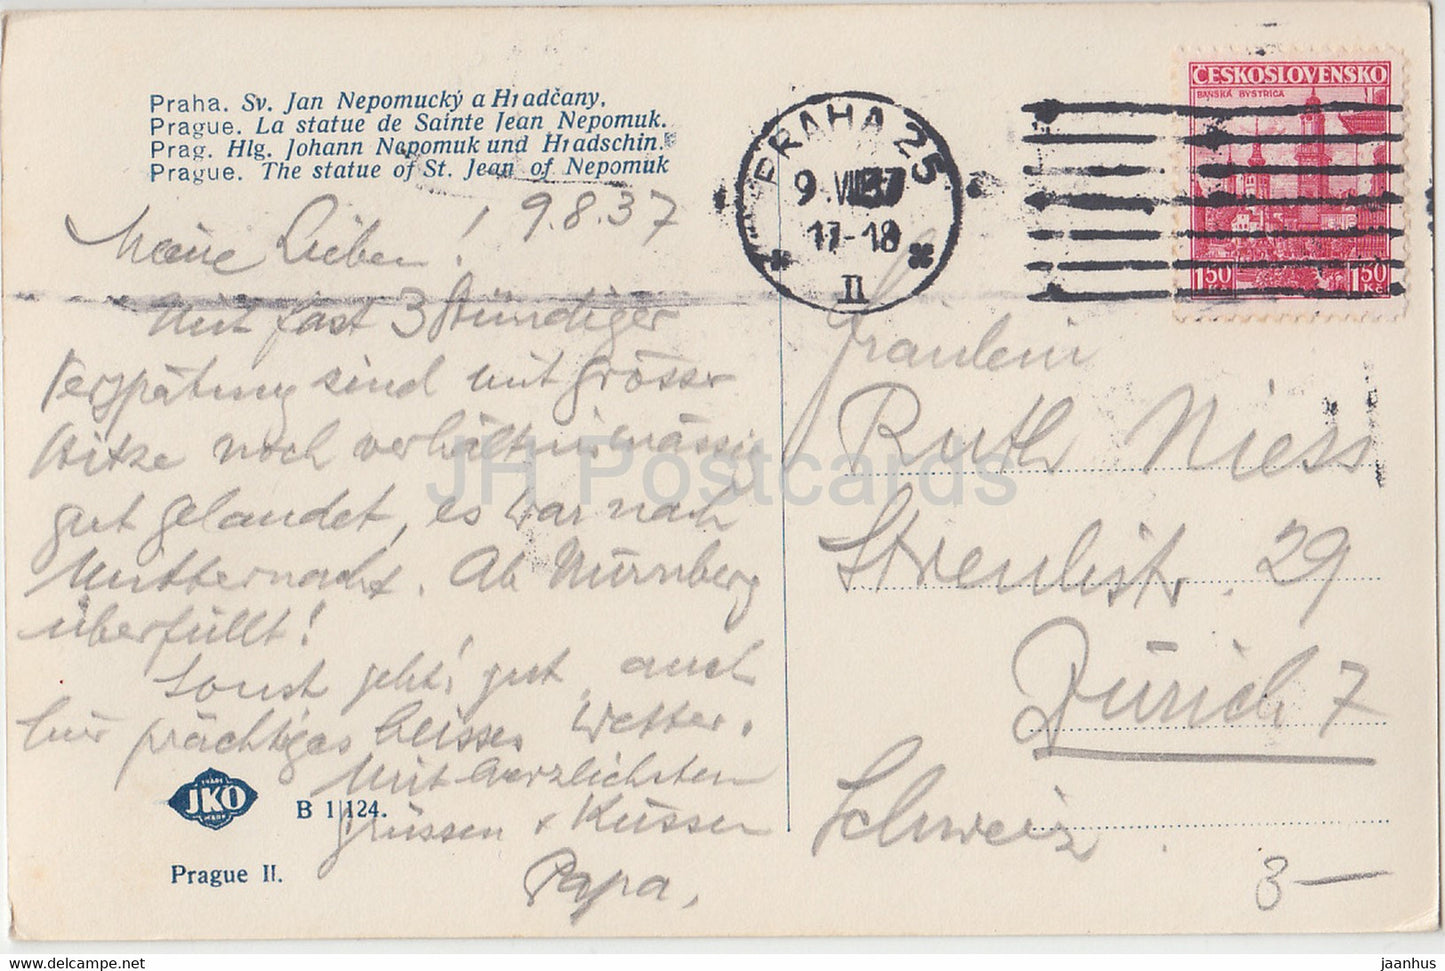 Praha. Sv. Jan Nepomucký a Hradčany,
Prague. La statue de Sainte Jean Nepomuk.
Prag. Hlg. Johann Nepomuk und Hradschin.
Prague. The statue of St. Jean of Nepomuk
9.8.37
Meine Lieben!
Mit fast 3 stündiger
Verspätung sind mit grösser
Hitze noch verhältnismässig
gut gelandet, es war nach
Mitternacht. Ab Nürnberg
überfüllt!
Sonst geht's gut, auch
hier prächtiges heisses Wetter.
Mit herzlichsten
Grüssen + Küssen
Papa.
JKO
TRADE MARK
B 1/124.
Prague II.
PRAHA 25
9.VIII.37
17-18
II
ČESKOSLOVENSKO
BAŇSKÁ BYSTRICA
1·50 1·50
Kč
Fräulein
Ruth Niess
Streulistr. 29
Zürich 7
Schweiz
8 —
JH Postcards
www.delcampe.net
jaanhus